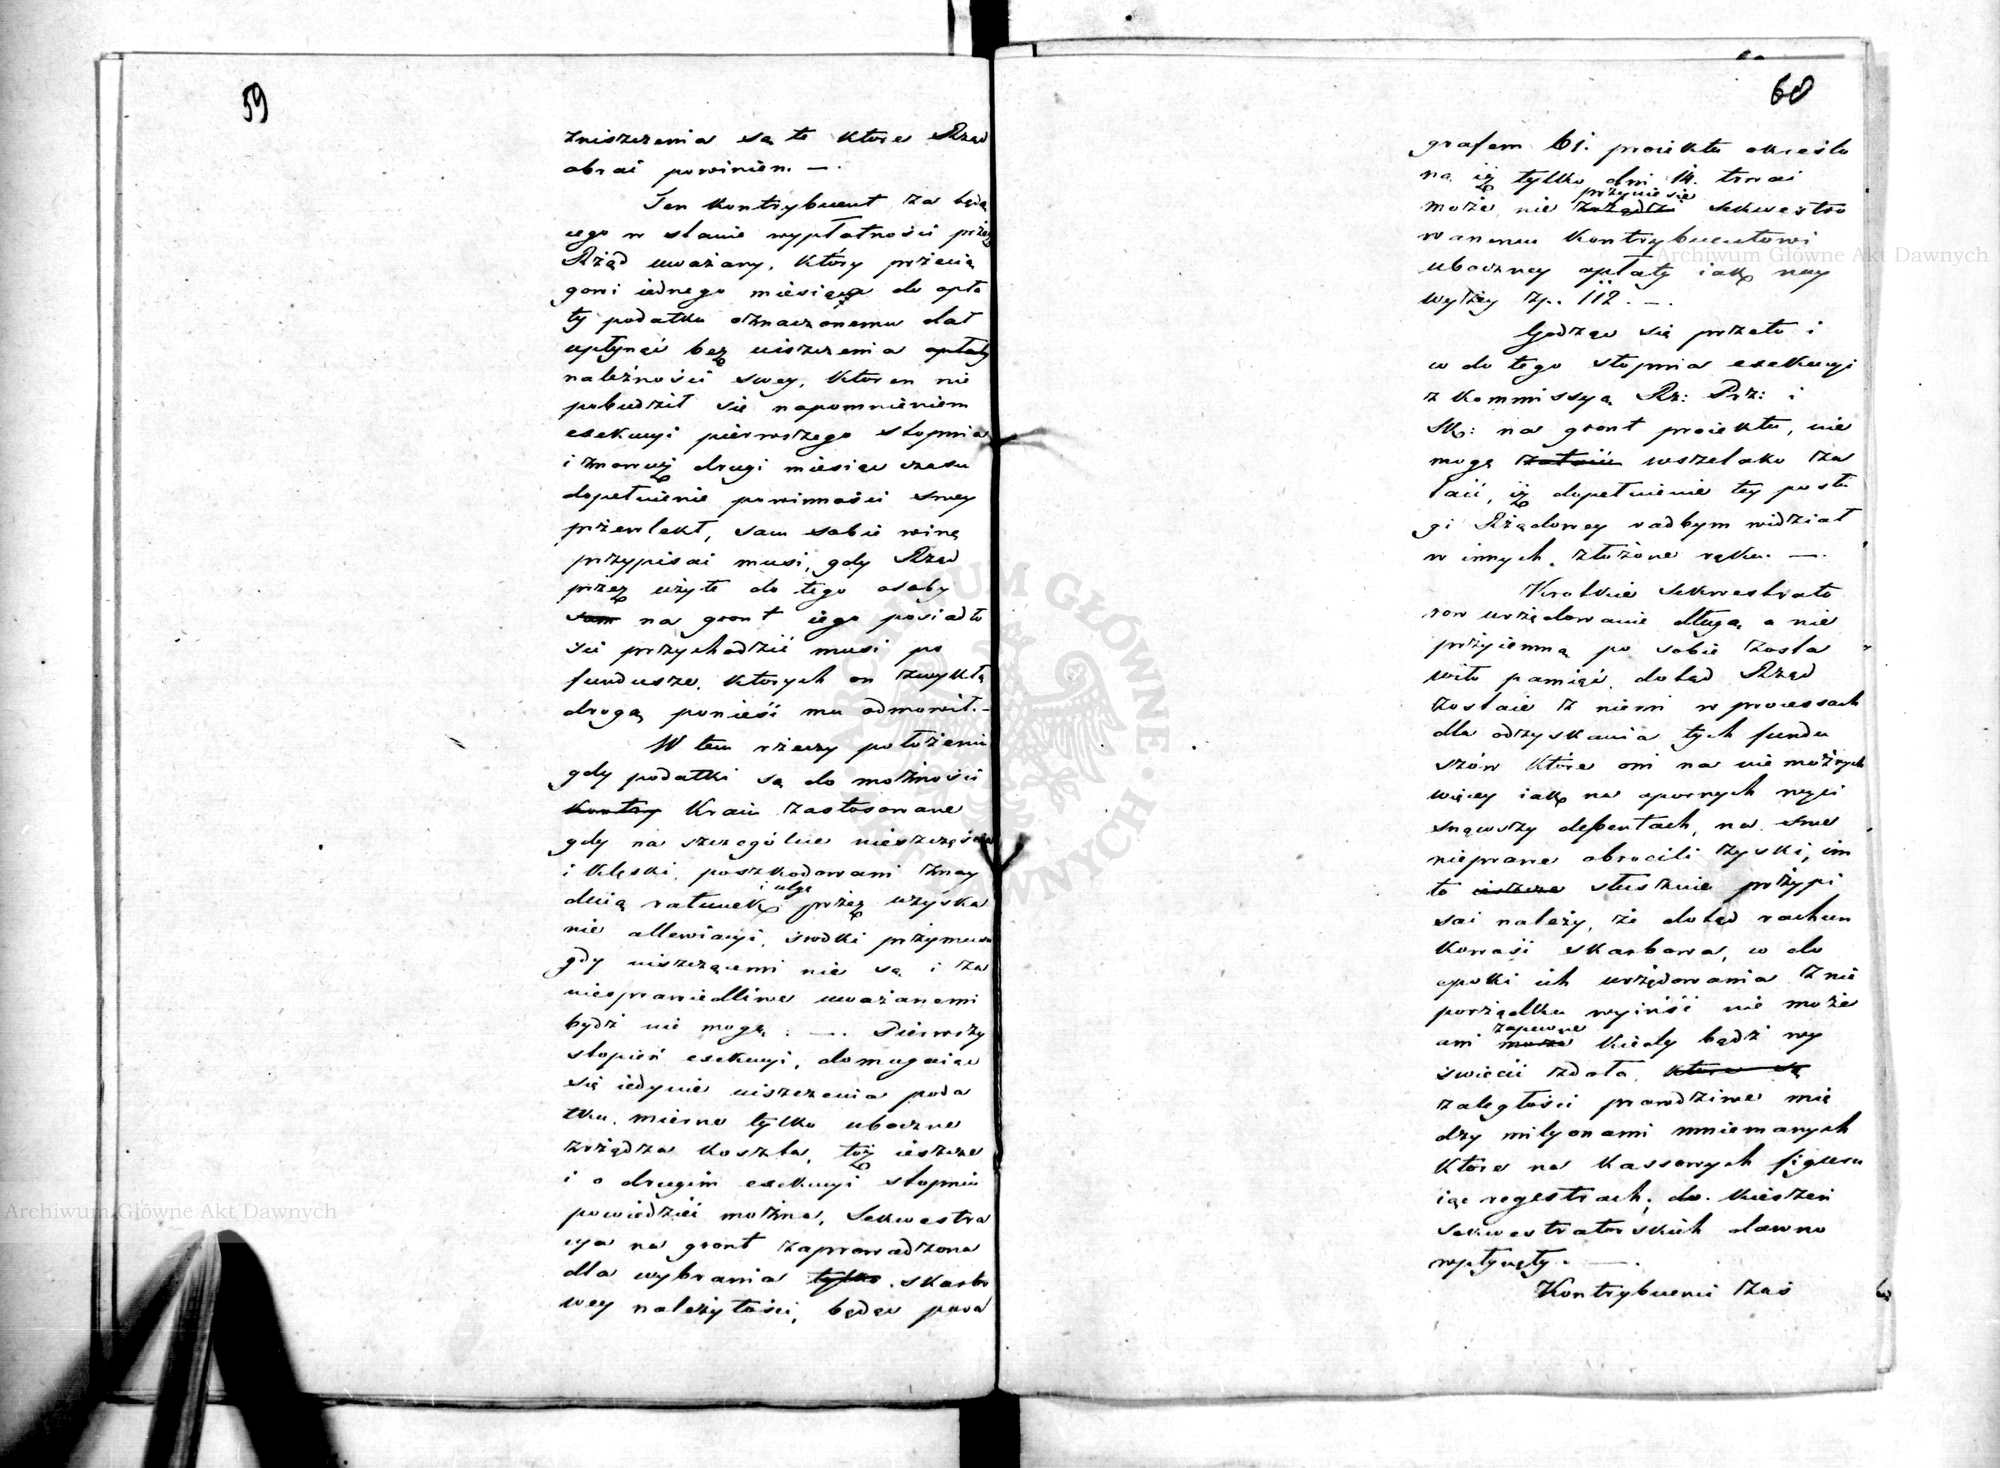 59
zniszczenia są te które Rząd
obrać powinien. —.
Ten kontrybuent za będą
cego w stanie wypłatności przez
Rząd uważany, który przecią
gowi iednego miesiąca do opła
ty podatku oznaczonemu dał
upłynąć bez uiszczenia opłaty
należności swey, któren nie
pobudził się napomnieniem
exekucyi pierwszego stopnia
i znowuż drugi miesiąc czasu
dopełnienie powinności swey
przewlekł, sam sobie winę
przypisać musi, gdy Rząd
przez użyte do tego osoby
sam na gront iego posiadło
ści przychodzić musi po
fundusze, których on zwykłą
drogą ponieść mu odmówił. —
W tem rzeczy położeniu
gdy podatki są do możności
kontry Kraiu zastosowane
gdy na szczególne nieszczęścia
i klęski, poszkodowani znay
i ulgę
duią ratunek przez uzyska
nie allewiacyi, środki przymusu
gdy niszczącemi nie są i za
niesprawiedliwe uważanemi
bydź nie mogą. —. Pierwszy
stopień exekucyi, domagaiąc
się iedynie uiszczenia poda
tku, mierne tylko uboczne
zrządza koszta, toż ieszcze
i o drugim exekucyi stopniu
powiedzieć można, Sekwestra
cya na gront zaprowadzona
dla wybrania tylko skarbo
wey należytości, będąc para
60
grafem 61. proiektu okreslo
na iż tylko dni 14. trwać
przyniesie
może nie zrządzi sekwestro
wanemu kontrybuentowi
uboczney opłaty iak nay
wyżey zp. 112. —.
Godząc się przeto i
w do tego stopnia exekucyi
z Kommissyą Rz: Prz: i
Sk: na gront proiektu, nie
mogę zataić wszelako za
taić, iż dopełnienie tey posłu
gi Rządowey radbym widział
w innych złożone ręku. —.
Krotkie sekwestrato
row urzędowanie długą a nie
przyiemną po sobie zosta
wiło pamięć, dotąd Rząd
zostaie z niemi w processach
dla odzyskania tych fundu
szów które oni na niemożnych
więcey iak na opornych wyci
snąwszy debentach, na swe
nieprawe obrócili zyski, im
to ieszcze słusznie przypi
sać należy, że dotąd rachun
kowość skarbowa, w do
epoki ich urzędowania z nie
porządku wyiniść nie może
zapewne
ani może kiedy bądź wy
świecić zdoła, które są
zaległości prawdziwe mię
dzy milyonami mniemanych
które na kassowych figuru
iąc regestrach, do kieszeń
sekwestratorskich dawno
wpłynęły. —.
Kontrybuenci zaś
Archiwum Główne Akt Dawnych
Archiwum Główne Akt Dawnych
ARCHIWUM GŁÓWNE AKT DAWNYCH